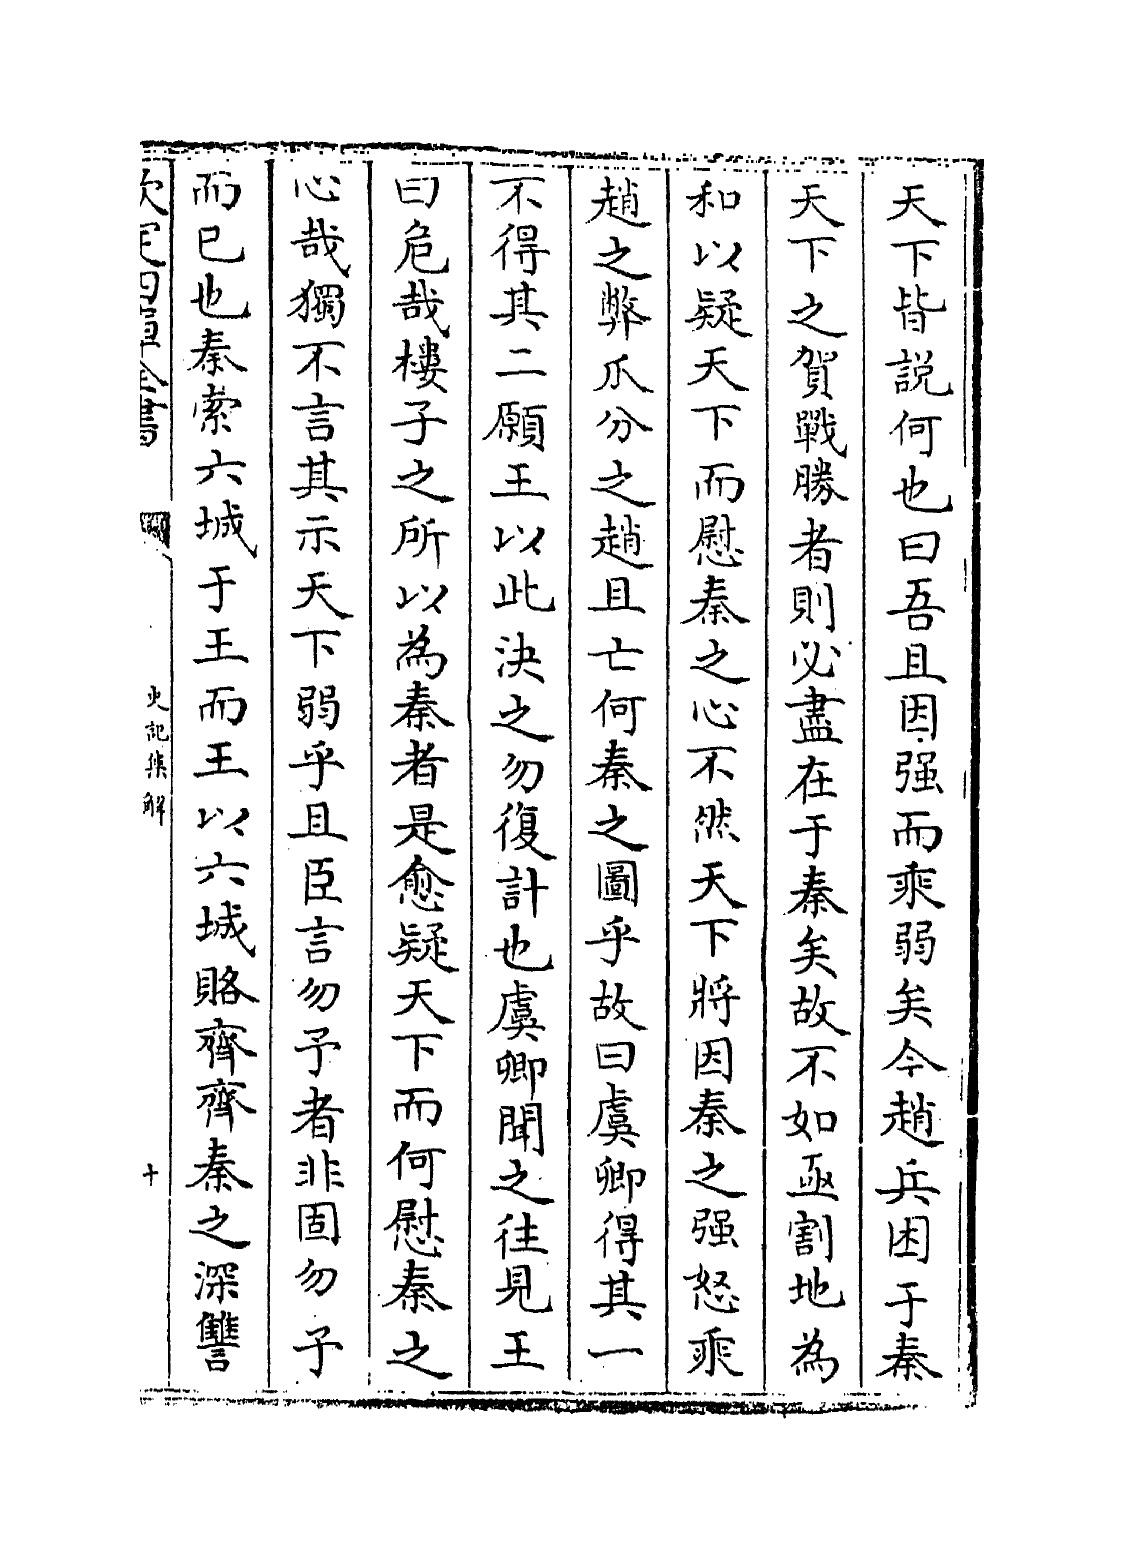 天下皆説何也曰吾且因强而乘弱矣今趙兵困于秦
天下之賀戰勝者則必盡在于秦矣故不如亟割地為
和以疑天下而慰秦之心不然天下將因秦之强怒乘
趙之弊瓜分之趙且亡何秦之圖乎故曰虞卿得其一
不得其二願王以此決之勿復計也虞卿聞之往見王
曰危哉樓子之所以為秦者是愈疑天下而何慰秦之
心哉獨不言其示天下弱乎且臣言勿予者非固勿予
而已也秦索六城于王而王以六城賂齊齊秦之深讐
欽定四庫全書
史記集解
十